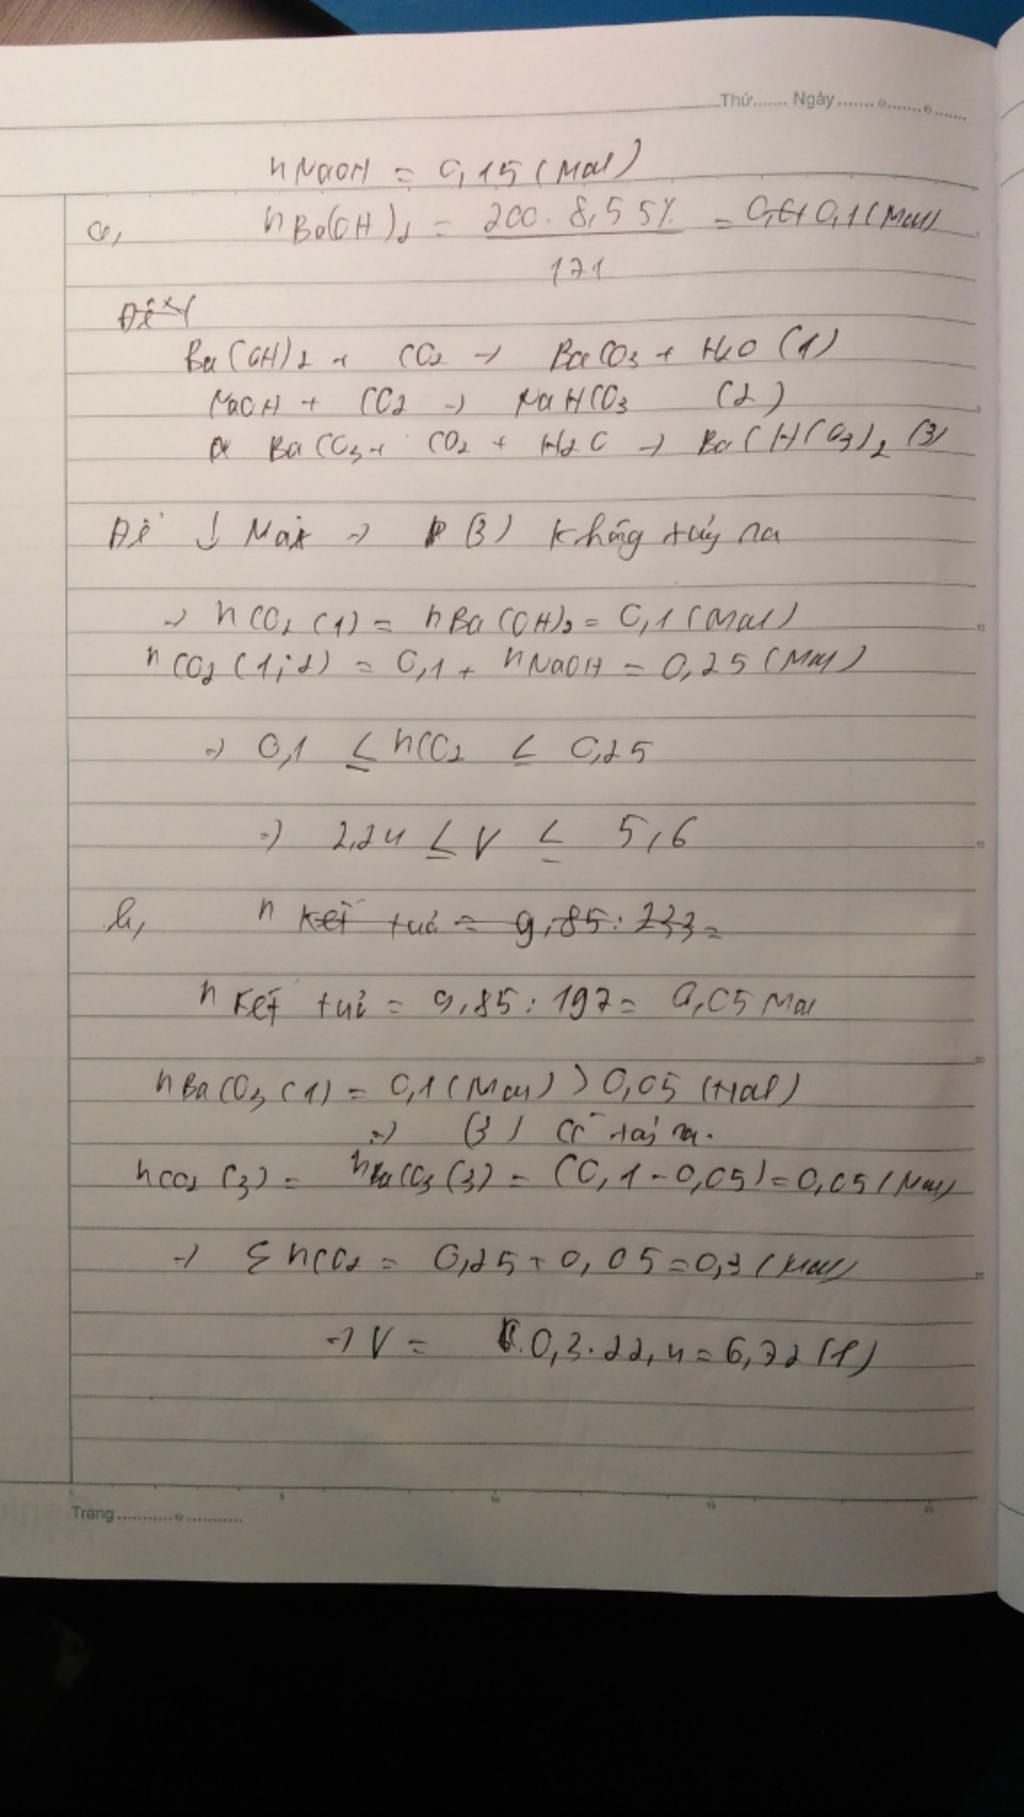 Thứ....... Ngày.......
nNaOH = 0,15 (Mol)
a, nBa(OH)2 = 200. 8,55% / 171 = 0,1 (Mol)
Để
Ba(OH)2 + CO2 → BaCO3 + H2O (1)
NaOH + CO2 → NaHCO3 (2)
BaCO3 + CO2 + H2O → Ba(HCO3)2 (3)
Để ↓ Max → (3) không xảy ra
→ nCO2 (1) = nBa(OH)2 = 0,1 (Mol)
nCO2 (1;2) = 0,1 + nNaOH = 0,25 (Mol)
→ 0,1 ≤ nCO2 ≤ 0,25
→ 2,24 ≤ V ≤ 5,6
b, n kết tủa = 9,85 : 233 =
n kết tủa = 9,85 : 197 = 0,05 Mol
nBaCO3 (1) = 0,1 (Mol) > 0,05 (Mol)
→ (3) có xảy ra.
nCO2 (3) = nBaCO3 (3) = (0,1 - 0,05) = 0,05 (Mol)
→ Σ nCO2 = 0,25 + 0,05 = 0,3 (Mol)
→ V = 0,3 . 22,4 = 6,72 (l)
Trang